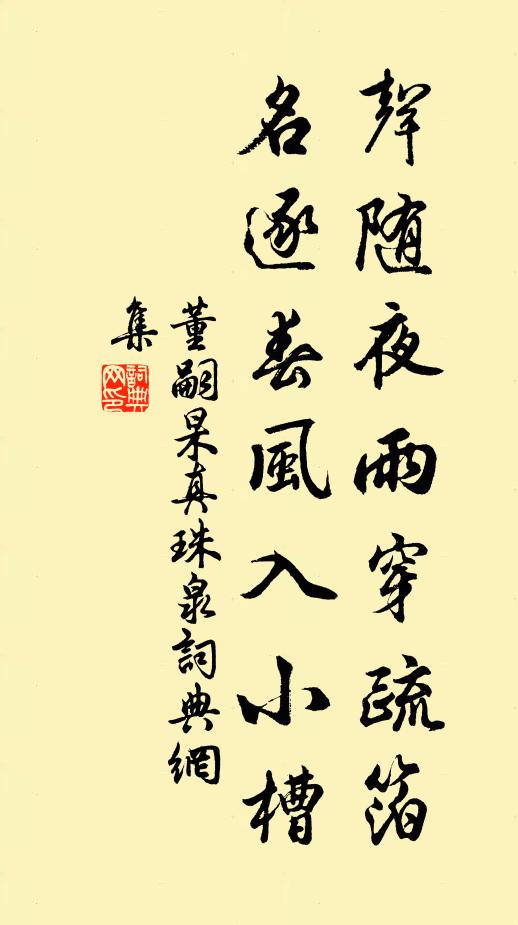 聲随夜雨穿疏箔
名逐春風入小槽
董嗣杲真珠泉詞典網
集
詞典
网印